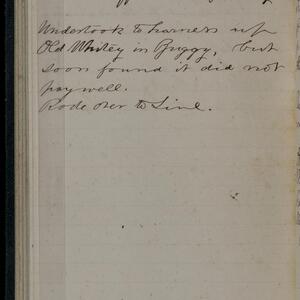 Undertook to harness up
Old Whitey in Buggy, but
soon found it did not
pay well.
Rode over to Line.